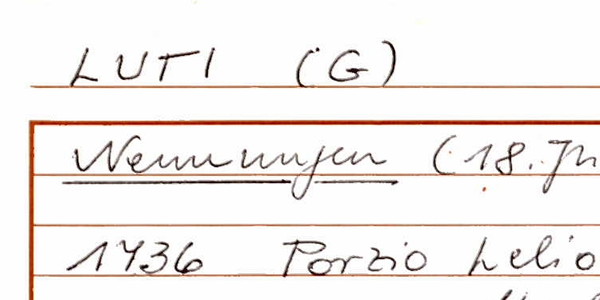 LUTI (G)
Nennungen (18. Jh
1736 Porzio Lelio